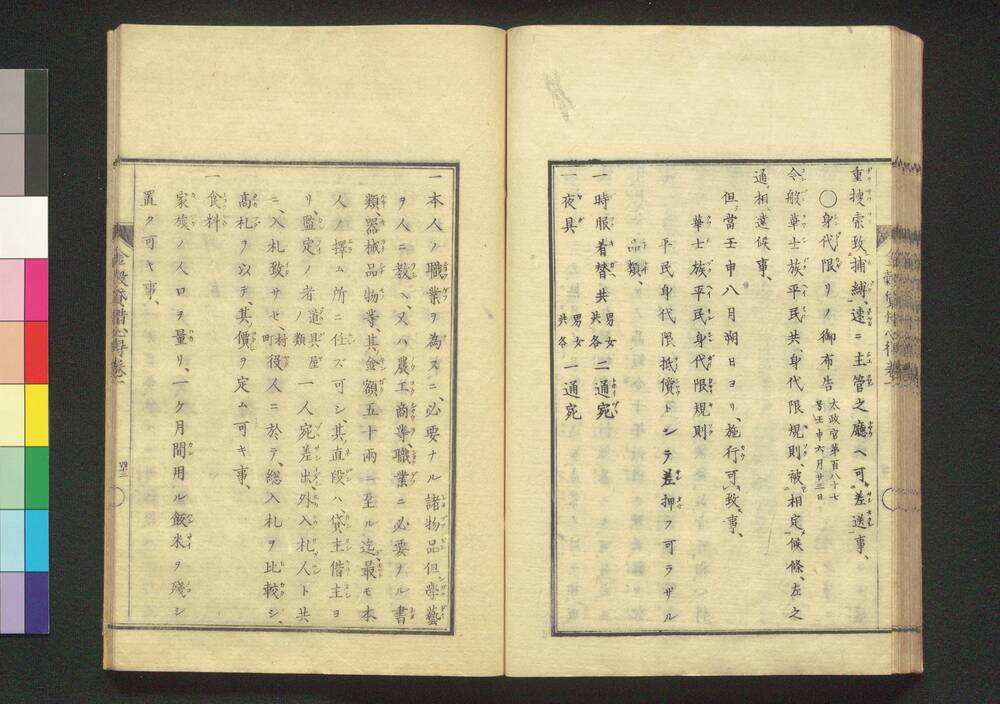 重搜索致捕縛、速ニ主管之廳ヘ可差送事、
〇身代限リノ御布告 太政官第百八十七
号壬申六月廿三日
今般華士族平民共、身代限規則、被相定候條、左之
通相達候事、
但當壬申八月朔日ヨリ、施行可致事、
華士族平民身代限規則
平民身代限抵償トシテ差押フ可ラザル
品類、
一時服着替共 男女共各 二通宛
一夜具 男女共各 一通宛
一本人ノ職業ヲ為スニ、必要ナル諸物品但學藝
ヲ人ニ教ヘ、又ハ農工商等、職業ニ必要ナル書
類器械品物等、其金額五十兩ニ至ル迄、最モ本
人ノ擇ム所ニ任ズ可シ、其直段ハ、貸主借主ヨ
リ、鑑定ノ者 道具屋ノ類 一人宛差出、外入札人ト共
ニ、入札致サセ、町村役人ニ於テ、総入札ヲ比較シ、
高札ヲ以テ、其價ヲ定ム可キ事、
一食料
家族ノ人口ヲ量リ、一ケ月間用ル飯米ヲ殘シ
置ク可キ事、